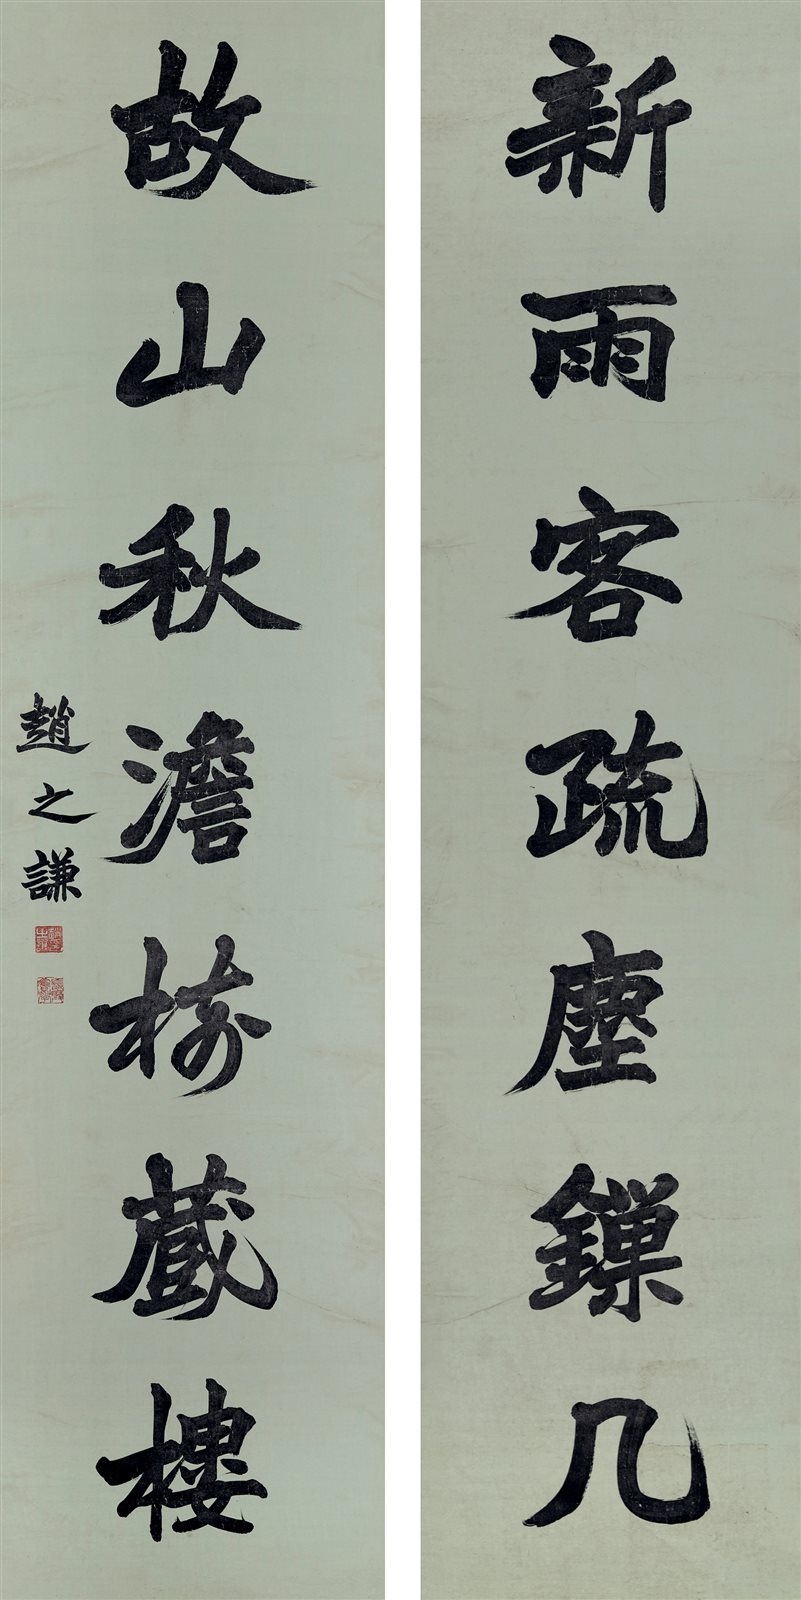 新雨客疏塵鏁几
故山秋澹樹藏樓
趙之謙